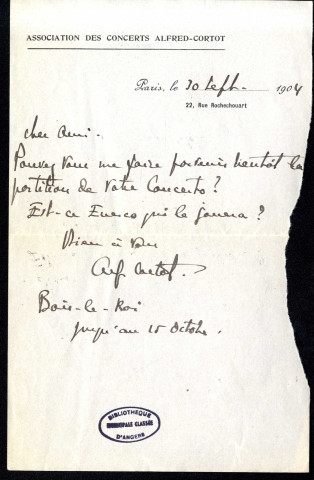 ASSOCIATION DES CONCERTS ALFRED-CORTOT
Paris, le 30 Sept. 1904
22, Rue Rochechouart
Cher Ami -
Pouvez vous me faire parvenir bientôt la
partition de votre Concerto ?
Est-ce Enesco qui le jouera ?
Bien à vous
Alf Cortot.
Bois-le-Roi
jusqu'au 15 Octobre.
BIBLIOTHÈQUE
MUNICIPALE CLASSÉE
D'ANGERS